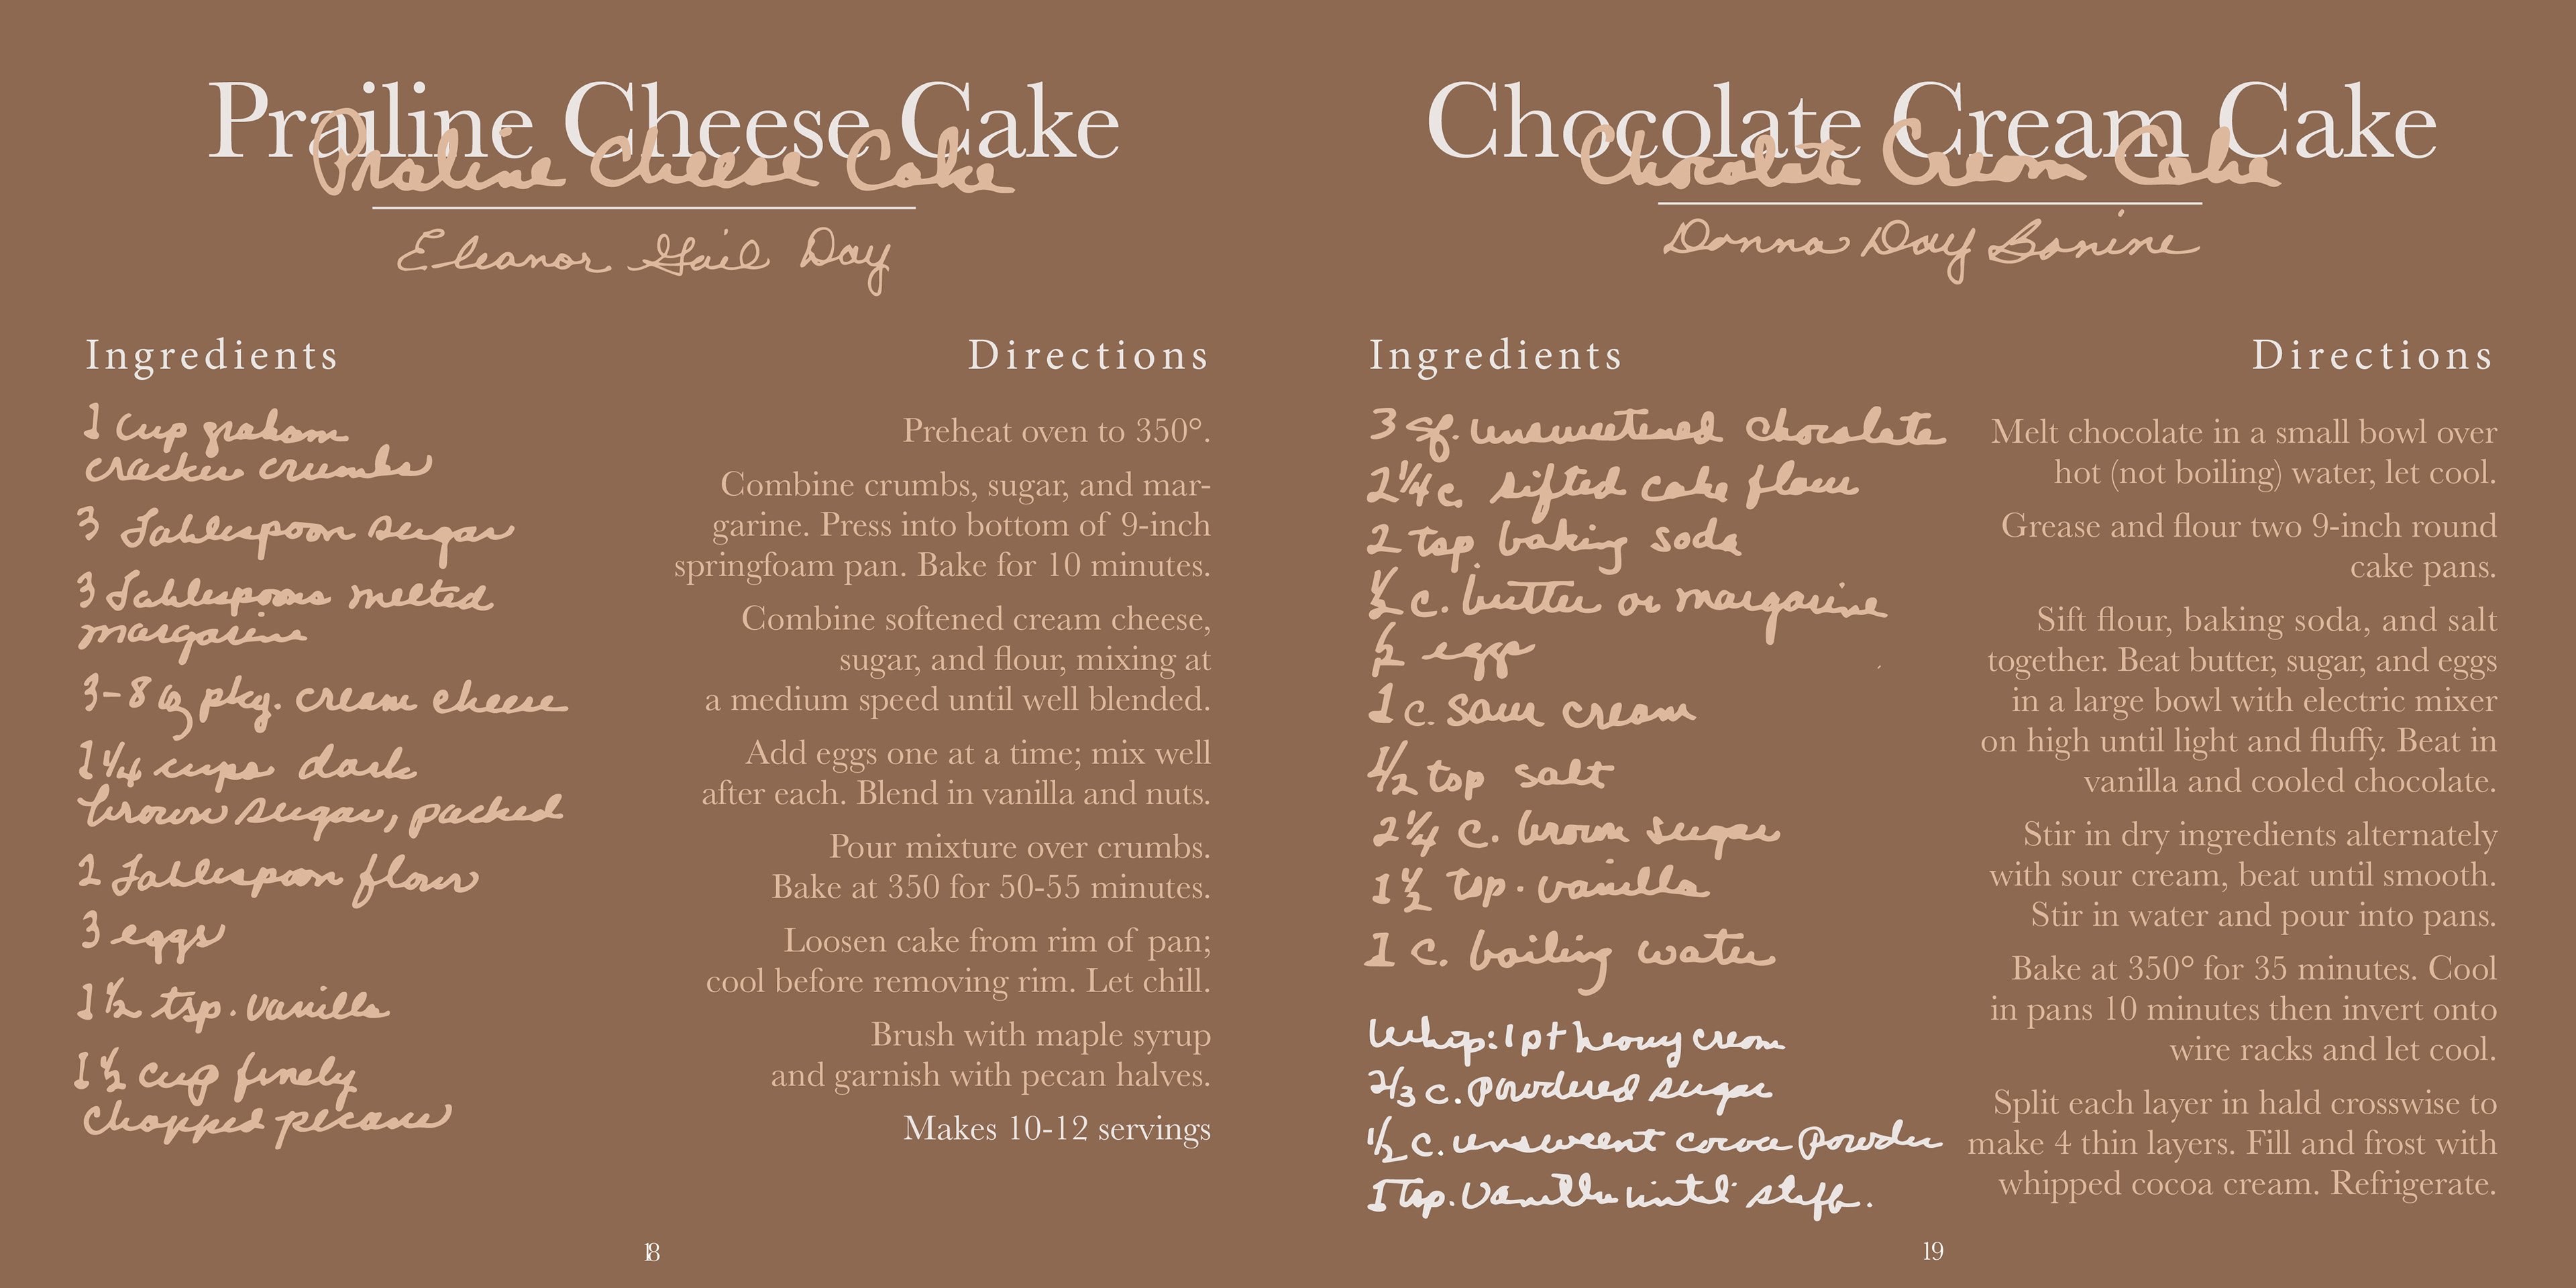 Prailine Cheese Cake
Praline Cheese Cake
Eleanor Gail Day
Ingredients
1 Cup graham
cracker crumbs
3 Tablespoon sugar
3 Tablespoons melted
margarine
3-8 oz pkg. cream cheese
1 1/4 cups dark
brown sugar, packed
2 Tablespoon flour
3 eggs
1 1/2 tsp. vanilla
1 1/2 cup finely
chopped pecans
Directions
Preheat oven to 350°.
Combine crumbs, sugar, and mar-
garine. Press into bottom of 9-inch
springfoam pan. Bake for 10 minutes.
Combine softened cream cheese,
sugar, and flour, mixing at
a medium speed until well blended.
Add eggs one at a time; mix well
after each. Blend in vanilla and nuts.
Pour mixture over crumbs.
Bake at 350 for 50-55 minutes.
Loosen cake from rim of pan;
cool before removing rim. Let chill.
Brush with maple syrup
and garnish with pecan halves.
Makes 10-12 servings
18
Chocolate Cream Cake
Chocolate Cream Cake
Donna Day Bonine
Ingredients
3 sq. unsweetened chocolate
2 1/4 c. sifted cake flour
2 tsp. baking soda
1/2 c. butter or margarine
eggs
1 c. sour cream
1/2 tsp salt
2 1/4 c. brown sugar
1 1/2 tsp. vanilla
1 c. boiling water
Whip: 1 pt heavy cream
2/3 c. powdered sugar
1/2 c. unsweent cocoa powder
1 tsp. vanilla until stiff.
Directions
Melt chocolate in a small bowl over
hot (not boiling) water, let cool.
Grease and flour two 9-inch round
cake pans.
Sift flour, baking soda, and salt
together. Beat butter, sugar, and eggs
in a large bowl with electric mixer
on high until light and fluffy. Beat in
vanilla and cooled chocolate.
Stir in dry ingredients alternately
with sour cream, beat until smooth.
Stir in water and pour into pans.
Bake at 350° for 35 minutes. Cool
in pans 10 minutes then invert onto
wire racks and let cool.
Split each layer in hald crosswise to
make 4 thin layers. Fill and frost with
whipped cocoa cream. Refrigerate.
19